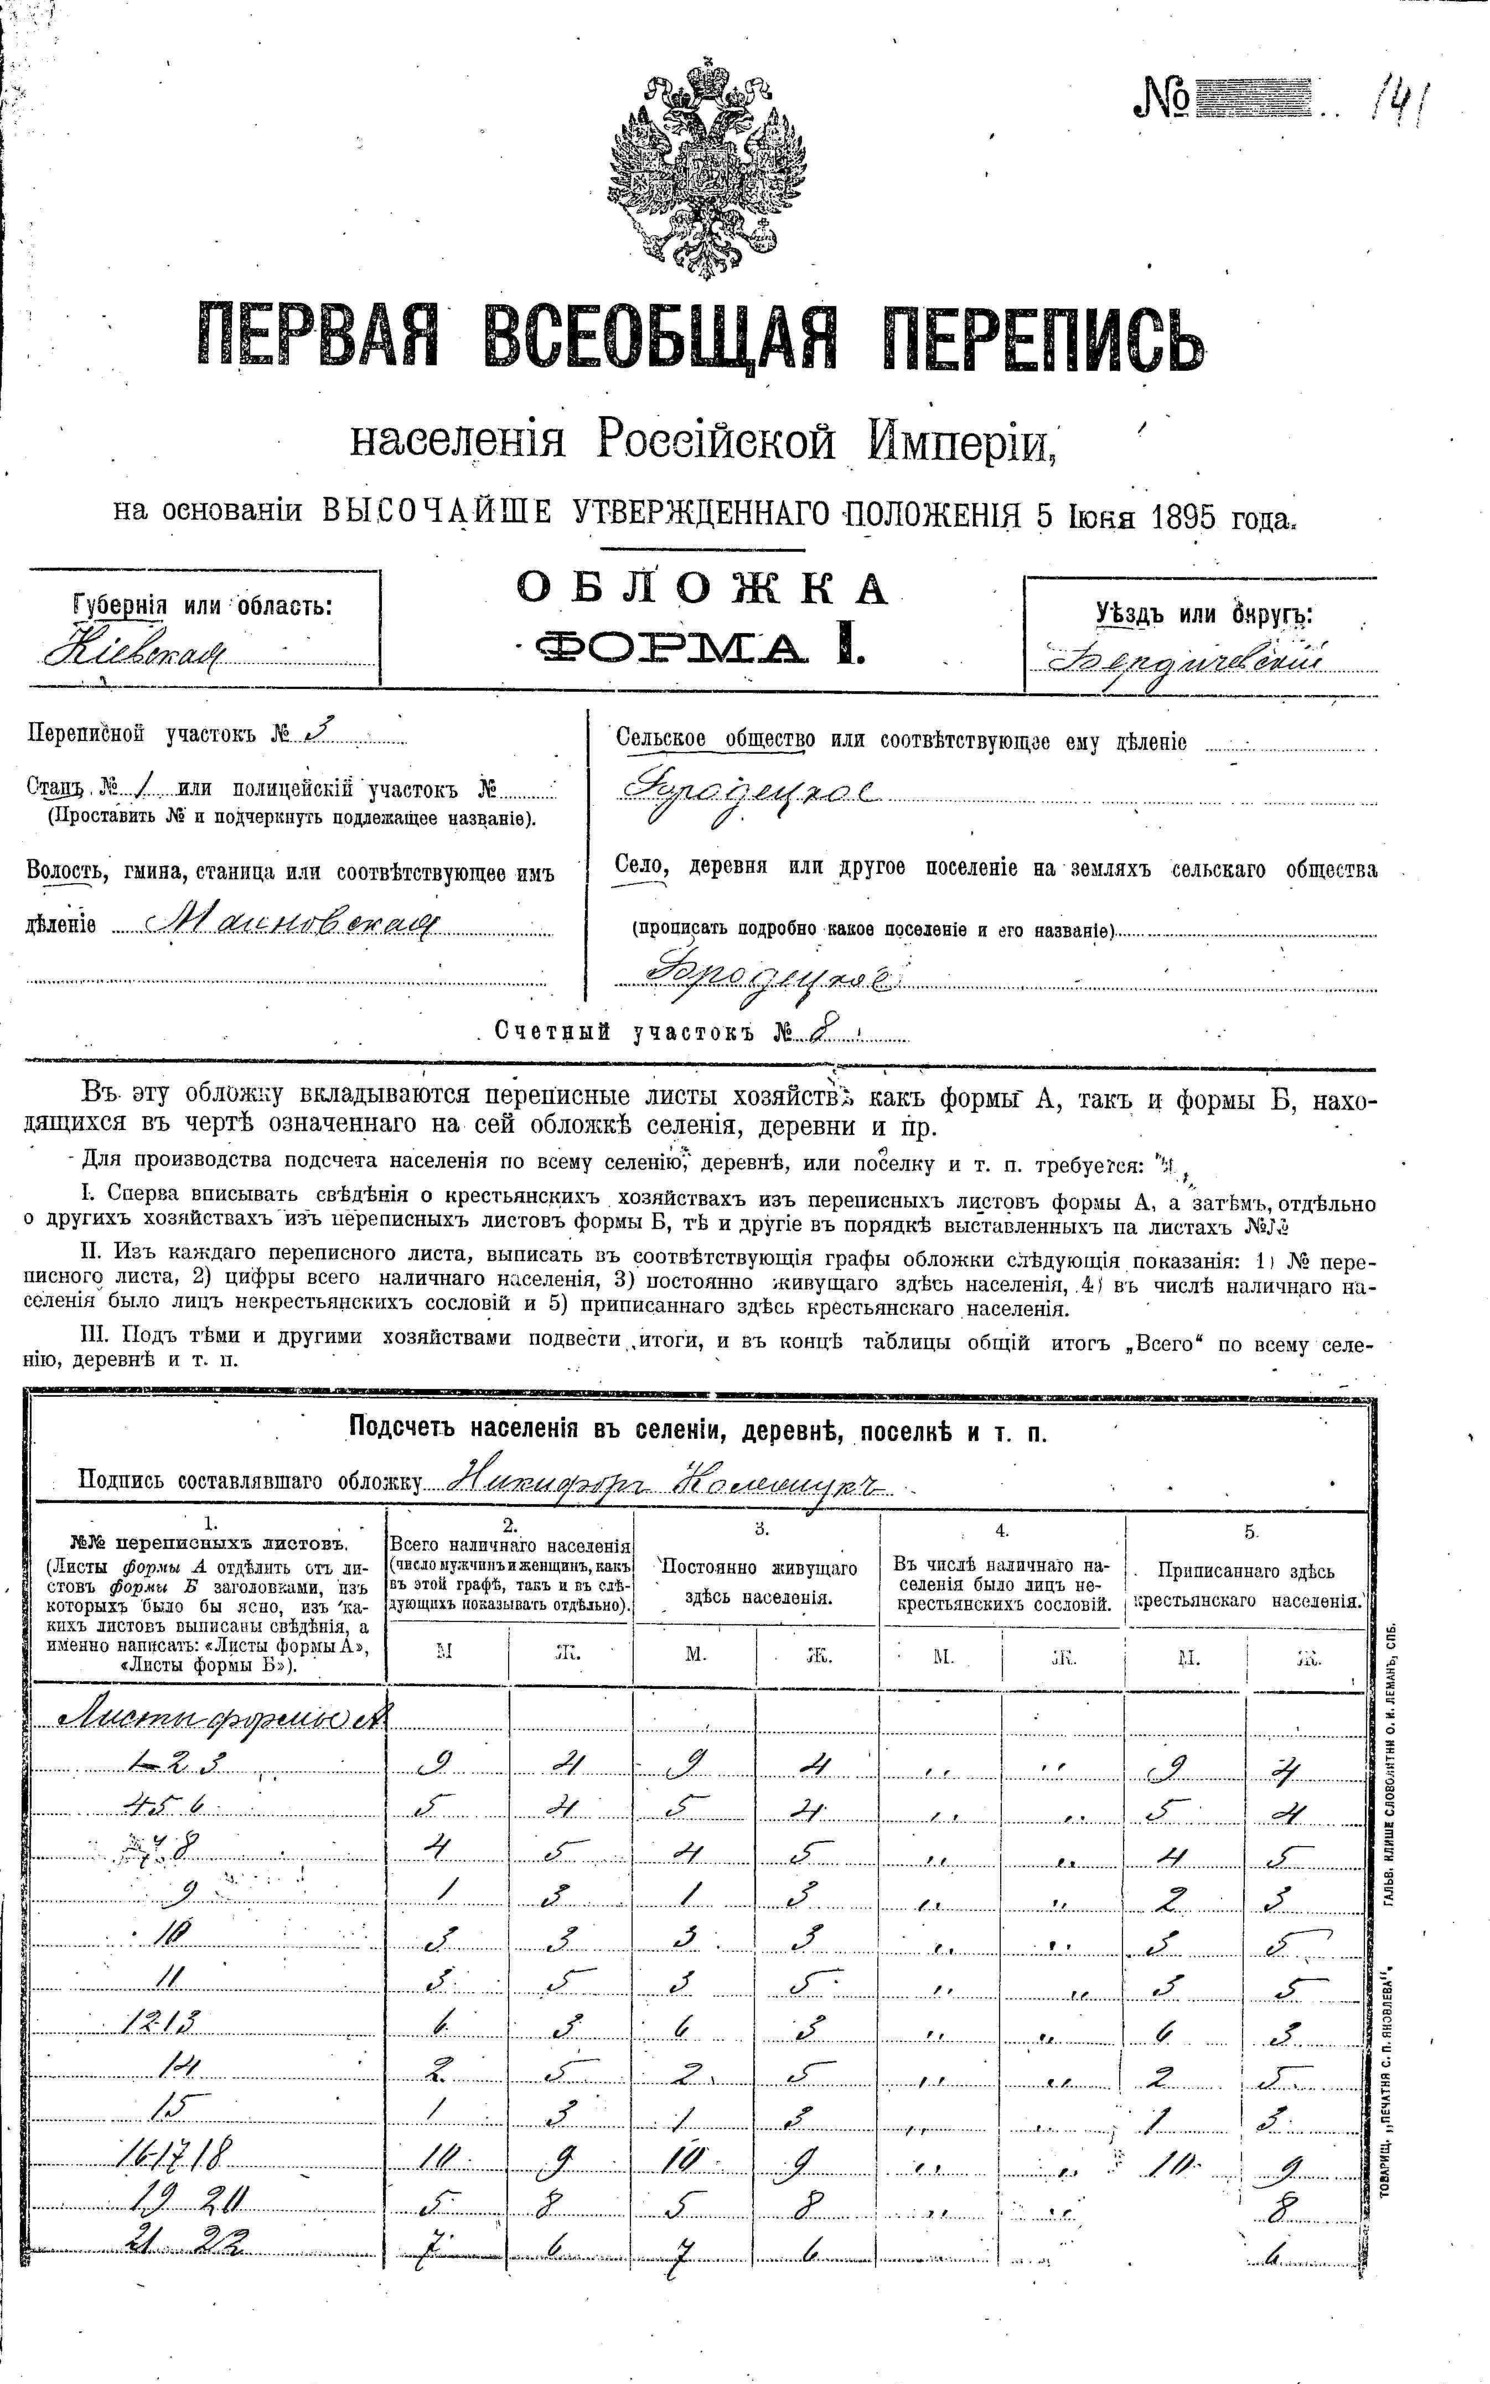 № 141
ПЕРВАЯ ВСЕОБЩАЯ ПЕРЕПИСЬ
населенія Россійской Имперіи,
на основаніи ВЫСОЧАЙШЕ УТВЕРЖДЕННАГО ПОЛОЖЕНІЯ 5 Іюня 1895 года.
ОБЛОЖКА
ФОРМА I.
Губернія или область:
Кіевская
Уѣздъ или округъ:
Бердичевскій
Переписной участокъ № 3
Станъ № 1 или полицейскій участокъ №
(Проставить № и подчеркнуть подлежащее названіе).
Волость, гмина, станица или соотвѣтствующее имъ
дѣленіе Махновская
Сельское общество или соотвѣтствующее ему дѣленіе
Бродецкое
Село, деревня или другое поселеніе на земляхъ сельскаго общества
(прописать подробно какое поселеніе и его названіе)
Бродецкое
Счетный участокъ № 8
Въ эту обложку вкладываются переписные листы хозяйствъ какъ формы А, такъ и формы Б, нахо-
дящихся въ чертѣ означеннаго на сей обложкѣ селенія, деревни и пр.
Для производства подсчета населенія по всему селенію, деревнѣ, или поселку и т. п. требуется:
I. Сперва вписывать свѣдѣнія о крестьянскихъ хозяйствахъ изъ переписныхъ листовъ формы А, а затѣмъ, отдѣльно
о другихъ хозяйствахъ изъ переписныхъ листовъ формы Б, тѣ и другіе въ порядкѣ выставленныхъ на листахъ №№
II. Изъ каждаго переписного листа, выписать въ соотвѣтствующія графы обложки слѣдующія показанія: 1) № пере-
писного листа, 2) цифры всего наличнаго населенія, 3) постоянно живущаго здѣсь населенія, 4) въ числѣ наличнаго на-
селенія было лицъ некрестьянскихъ сословій и 5) приписаннаго здѣсь крестьянскаго населенія.
III. Подъ тѣми и другими хозяйствами подвести итоги, и въ концѣ таблицы общій итогъ „Всего“ по всему селе-
нію, деревнѣ и т. п.
Подсчетъ населенія въ селеніи, деревнѣ, поселкѣ и т. п.
Подпись составлявшаго обложку Никифоръ
1.
№№ переписныхъ листовъ.
(Листы формы А отдѣлить отъ ли-
стовъ формы Б заголовками, изъ
которыхъ было бы ясно, изъ ка-
кихъ листовъ выписаны свѣдѣнія, а
именно написать: «Листы формы А»,
«Листы формы Б»).
2.
Всего наличнаго населенія
(число мужчинъ и женщинъ, какъ
въ этой графѣ, такъ и въ слѣ-
дующихъ показывать отдѣльно).
3.
Постоянно живущаго
здѣсь населенія.
4.
Въ числѣ наличнаго на-
селенія было лицъ не-
крестьянскихъ сословій.
5.
Приписаннаго здѣсь
крестьянскаго населенія.
М. Ж. М. Ж. М. Ж. М. Ж.
Листы формы А
1 2 3 9 4 9 4 " " 9 4
4 5 6 5 4 5 4 " " 5 4
7 8 4 5 4 5 " " 4 5
9 1 3 1 3 " " 2 3
10 3 3 3 3 " " 3 5
11 3 5 3 5 " " 3 5
12 13 6 3 6 3 " " 6 3
14 2 5 2 5 " " 2 5
15 1 3 1 3 " " 1 3
16 17 18 10 9 10 9 " " 10 9
19 20 5 8 5 8 " " 8
21 22 7 6 7 6 " 6
ГАЛЬВ. КЛИШЕ СЛОВОЛИТНИ О. И. ЛЕМАНЪ, СПБ.
ТОВАРИЩ. „ПЕЧАТНЯ С. П. ЯКОВЛЕВА“,